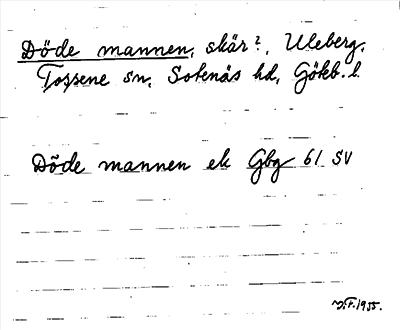 Döde mannen, skär?, Uleberg,
Tossene sn, Sotenäs hd, Göteb. l.
Döde mannen ek Gbg 61 SV
V.F. 1935.